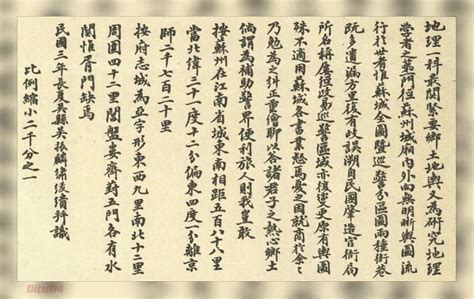 地理一科最關緊要鄉土地輿又為研究地理
學者之第一階位蘇州城廂內外向無明晰輿圖流
行於世者惟蘇城全圖暨巡警分區圖兩種街巷
既多遺漏方向復有歧誤溯自民國肇造官衙局
所名稱屢經改易巡警區域亦復遷更原有輿圖
殊不適用蘇城各書業憨焉憂之因就商於余余
乃勉為之糾正重繪聊以答諸君子之熱心鄉土
倘謂為補助警界便利旅人則我豈敢
按蘇州在江南省城東南相距五百八十八里
當北緯三十一度十二分偏東四度一分離京
師二千七百二十里
按府志城為亞字形東西九里南北十二里
周圍四十二里閶盤婁齊葑五門各有水
關惟胥門缺焉
民國三年長夏吳縣吳張麟緒後續并識
比例縮小二千分之一
Ditu114